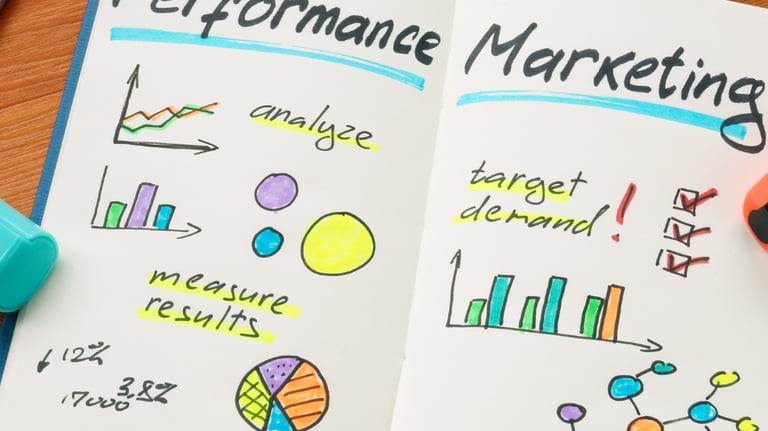 Performance
analyze
measure
results
12%
3,8%
17000
Marketing
target
demand!